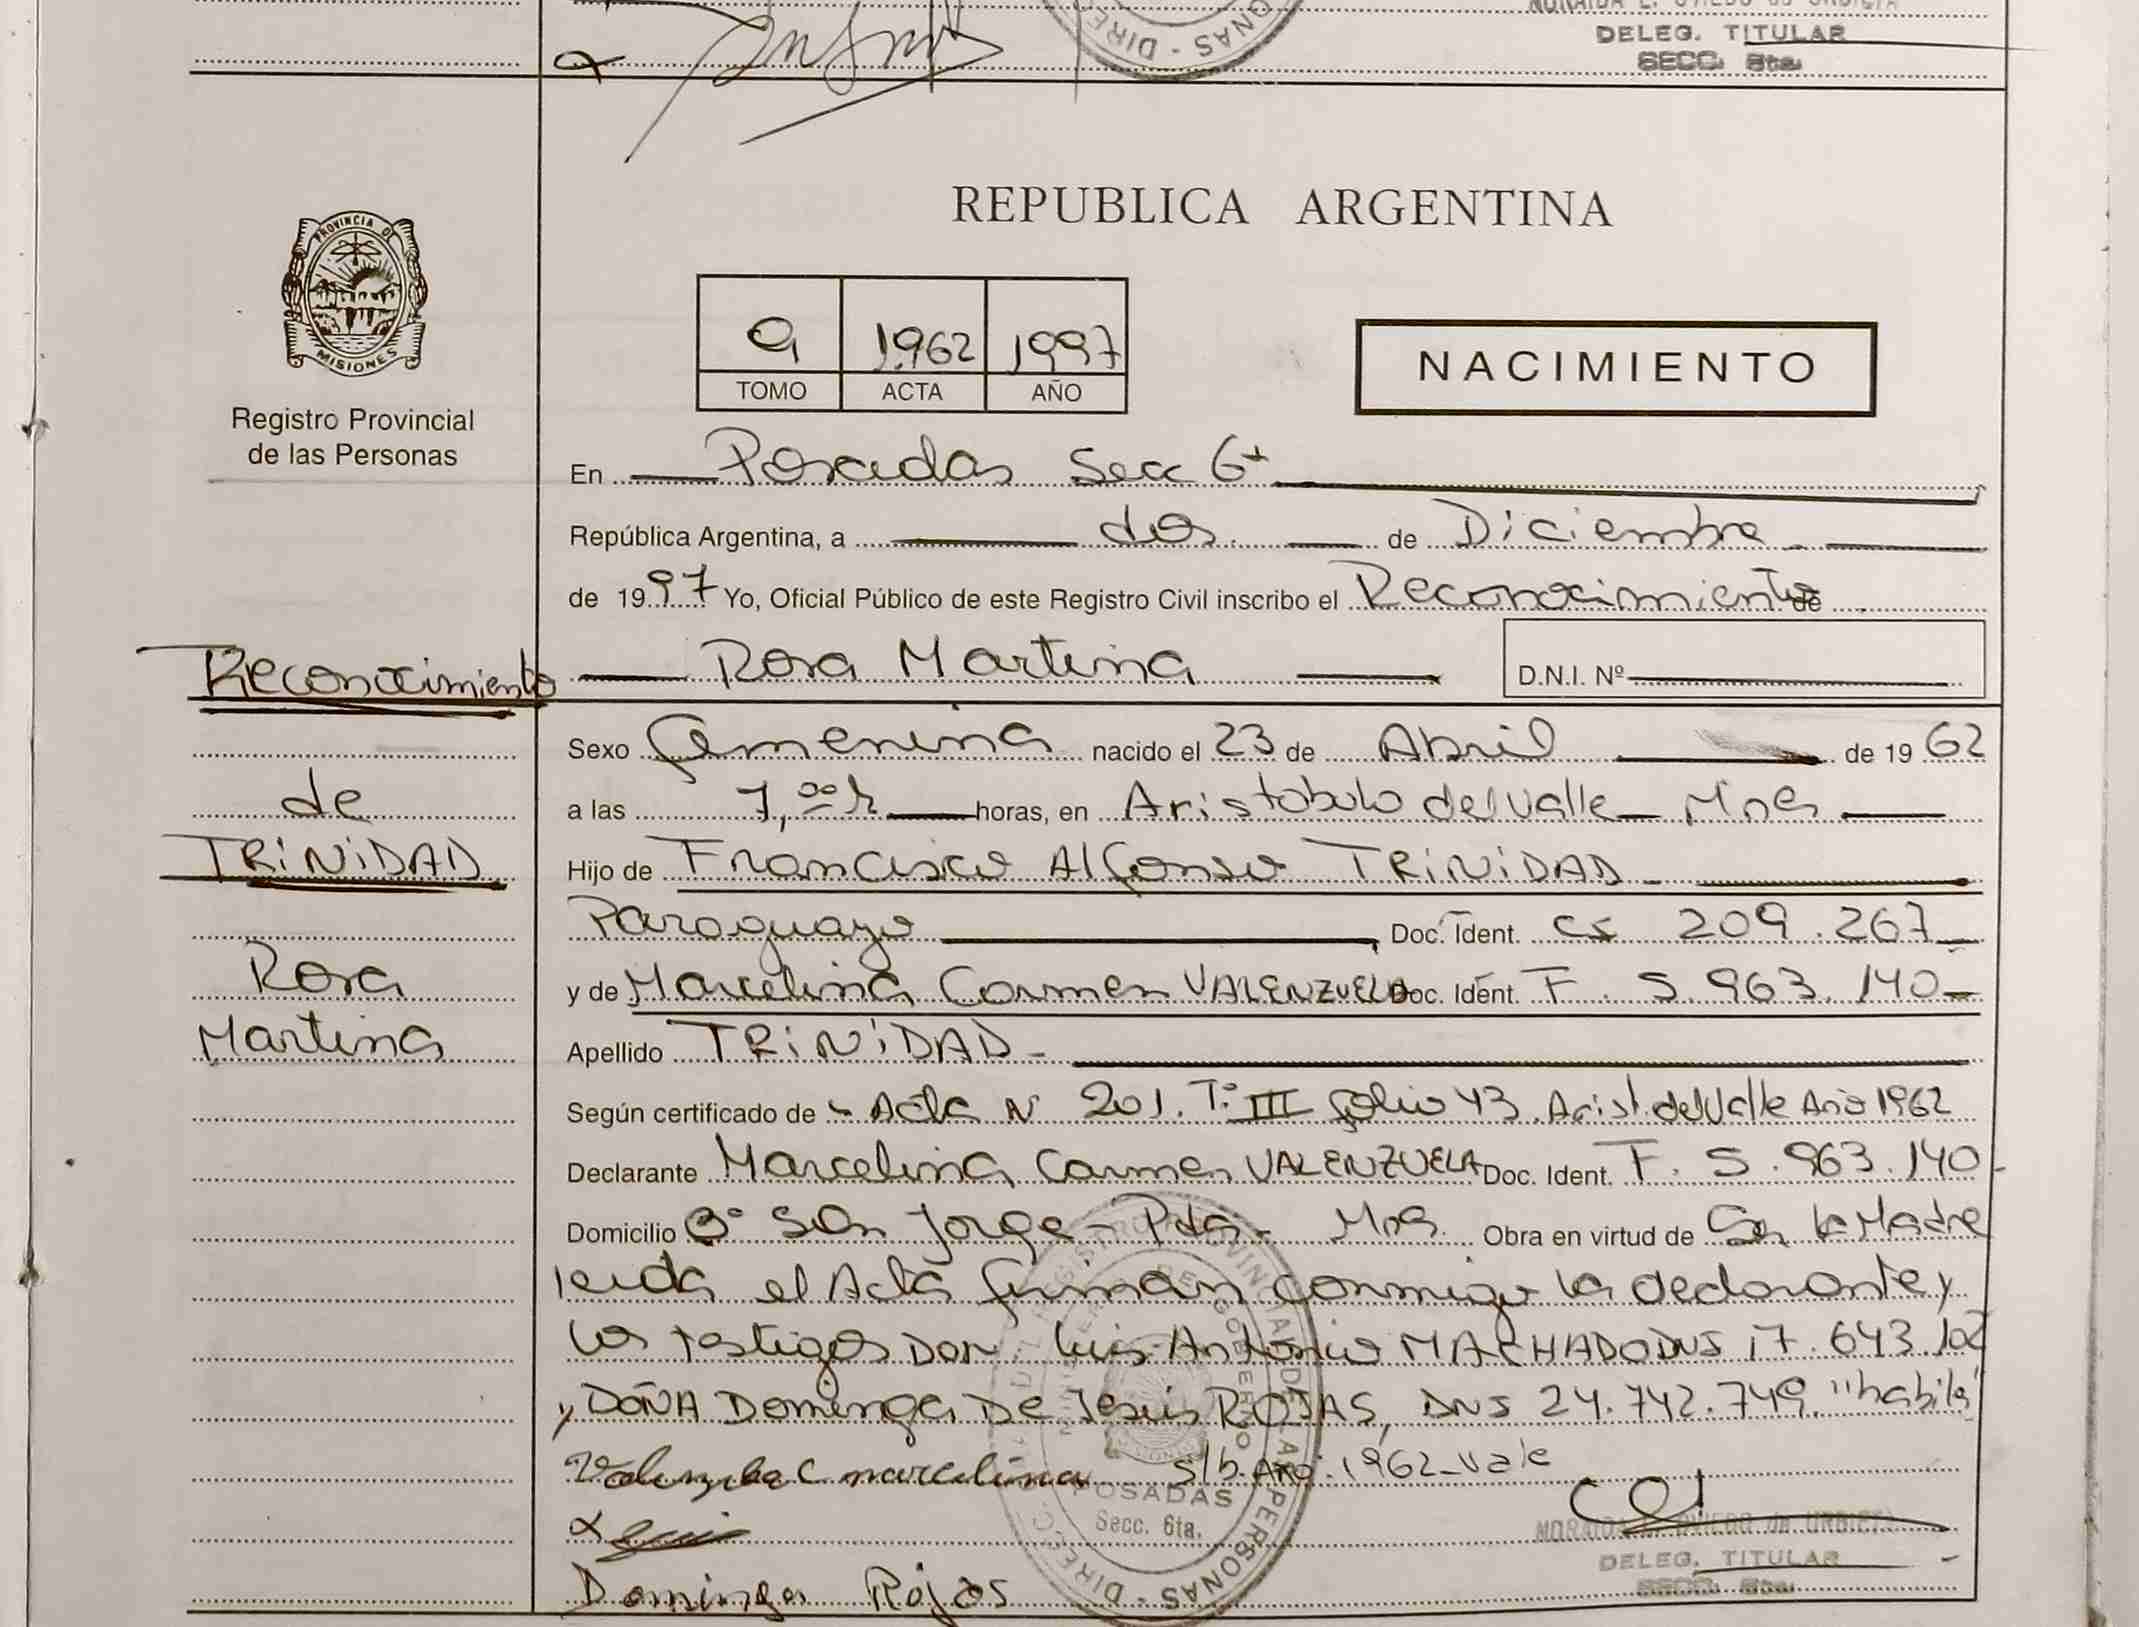 DELEG. TITULAR
SECC. 6ta.
DIRE
ONAS
PROVINCIA DE
MISIONES
Registro Provincial
de las Personas
REPUBLICA ARGENTINA
1962 1997
TOMO ACTA AÑO
NACIMIENTO
En Posadas Secc 6ta
República Argentina, a dos de Diciembre
de 1997 Yo, Oficial Público de este Registro Civil inscribo el Reconocimiento de
Rosa Martina D.N.I. Nº
Reconocimiento
de
TRINIDAD
Rosa
Martina
Sexo femenina nacido el 23 de Abril de 1962
a las 7,00 h horas, en Aristobulo del Valle Mnes
Hijo de Francisco Alfonso TRINIDAD
Paraguayo Doc. Ident. CI 209.267
y de Marcelina Carmen VALENZUELA Doc. Ident. F. 5.963.140
Apellido TRINIDAD
Según certificado de Acta Nº 201. Tº III folio 43. Arist. del Valle Año 1962
Declarante Marcelina Carmen VALENZUELA Doc. Ident. F. 5.963.140
Domicilio Bº San Jorge - Pdas - Mnes. Obra en virtud de Ser la Madre
leida el Acta firman conmigo la declarante y
los testigos DON Luis Antonio MACHADO DNI 17.643.102
y DOÑA Dominga De Jesus ROJAS, DNI 24.742.749. "habiles"
Valenzuela C marcelina s/b. Año. 1962 - Vale
POSADAS
Secc. 6ta.
DELEG. TITULAR
SECC. 6ta.
Dominga Rojas